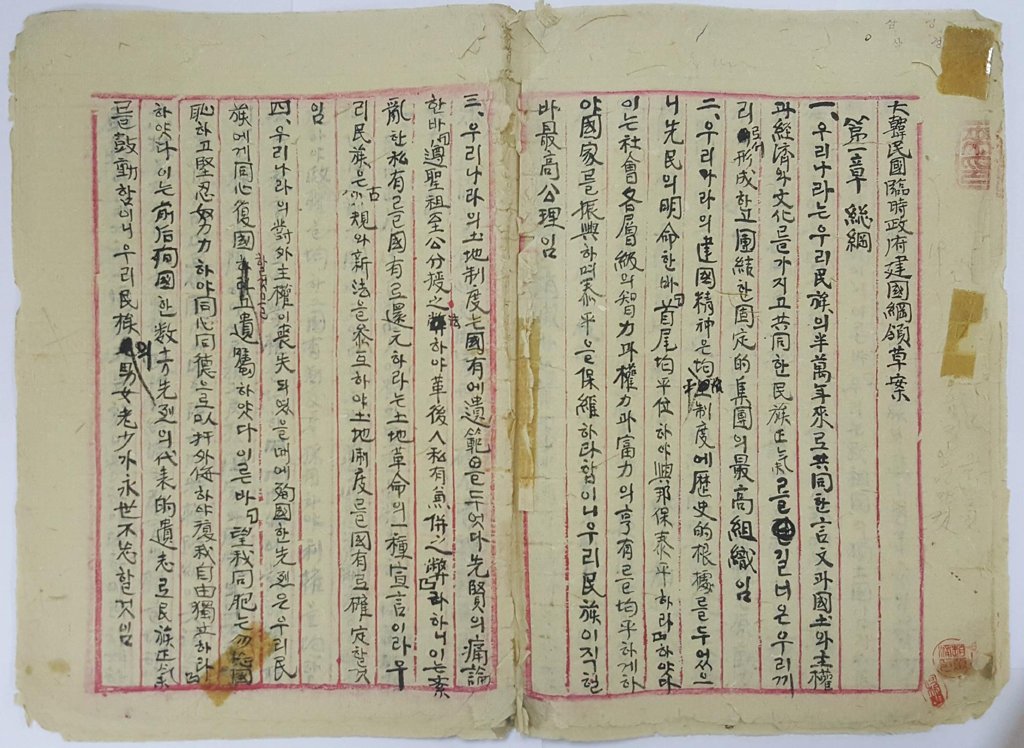 大韓民國臨時政府建國綱領草案
第一章 総綱
一、우리나라는우리民族의半萬年來로共同한言文과國土와主權
과經濟와文化를가지고共同한民族正氣를길너온우리끼
리로서形成하고團結한固定的集團의最高組織임
二、우리나라의建國精神은均制度에歷史的根據를두었으
니先民의明命한바「首尾均平位하야興邦保泰平하라」하얏다
이는社會各層級의智力과權力과富力의享有를均平하게하
야國家를振興하며泰平을保維하라함이니우리民族이직힐
바最高公理임
三、우리나라의土地制度는國有에遺範을두엇다先賢의痛論
한바「遵聖祖至公分授之法하야革後人私有兼併之弊」라하니이는紊
亂한私有를國有로還元하라는土地革命의一種宣言이라우
리民族은古規와新法을參互하야土地制度를國有로確定할것
임
四、우리나라의對外主權이喪失되였을때에殉國한先烈은우리民
族에게同心復國할것을遺囑하얏다이른바「望我同胞는勿忘國
恥하고堅忍努力하야同心同德으로以扞外侮하야復我自由獨立하라」
하얏다이는前后殉國한数十万先烈의代表的遺志로民族正氣
를鼓動함이니우리民族의男女老少가永世不忘할것임